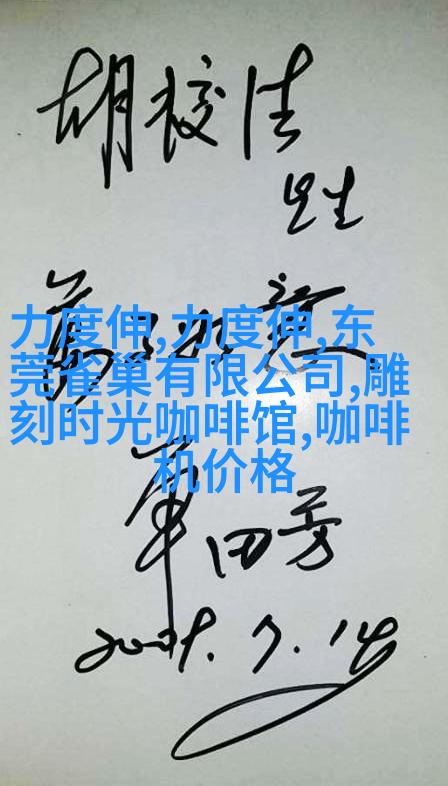 胡校
先生
力度伸,力度伸,东
莞雀巢有限公司,雕
刻时光咖啡馆,咖啡
机价格
单田芳
7.14